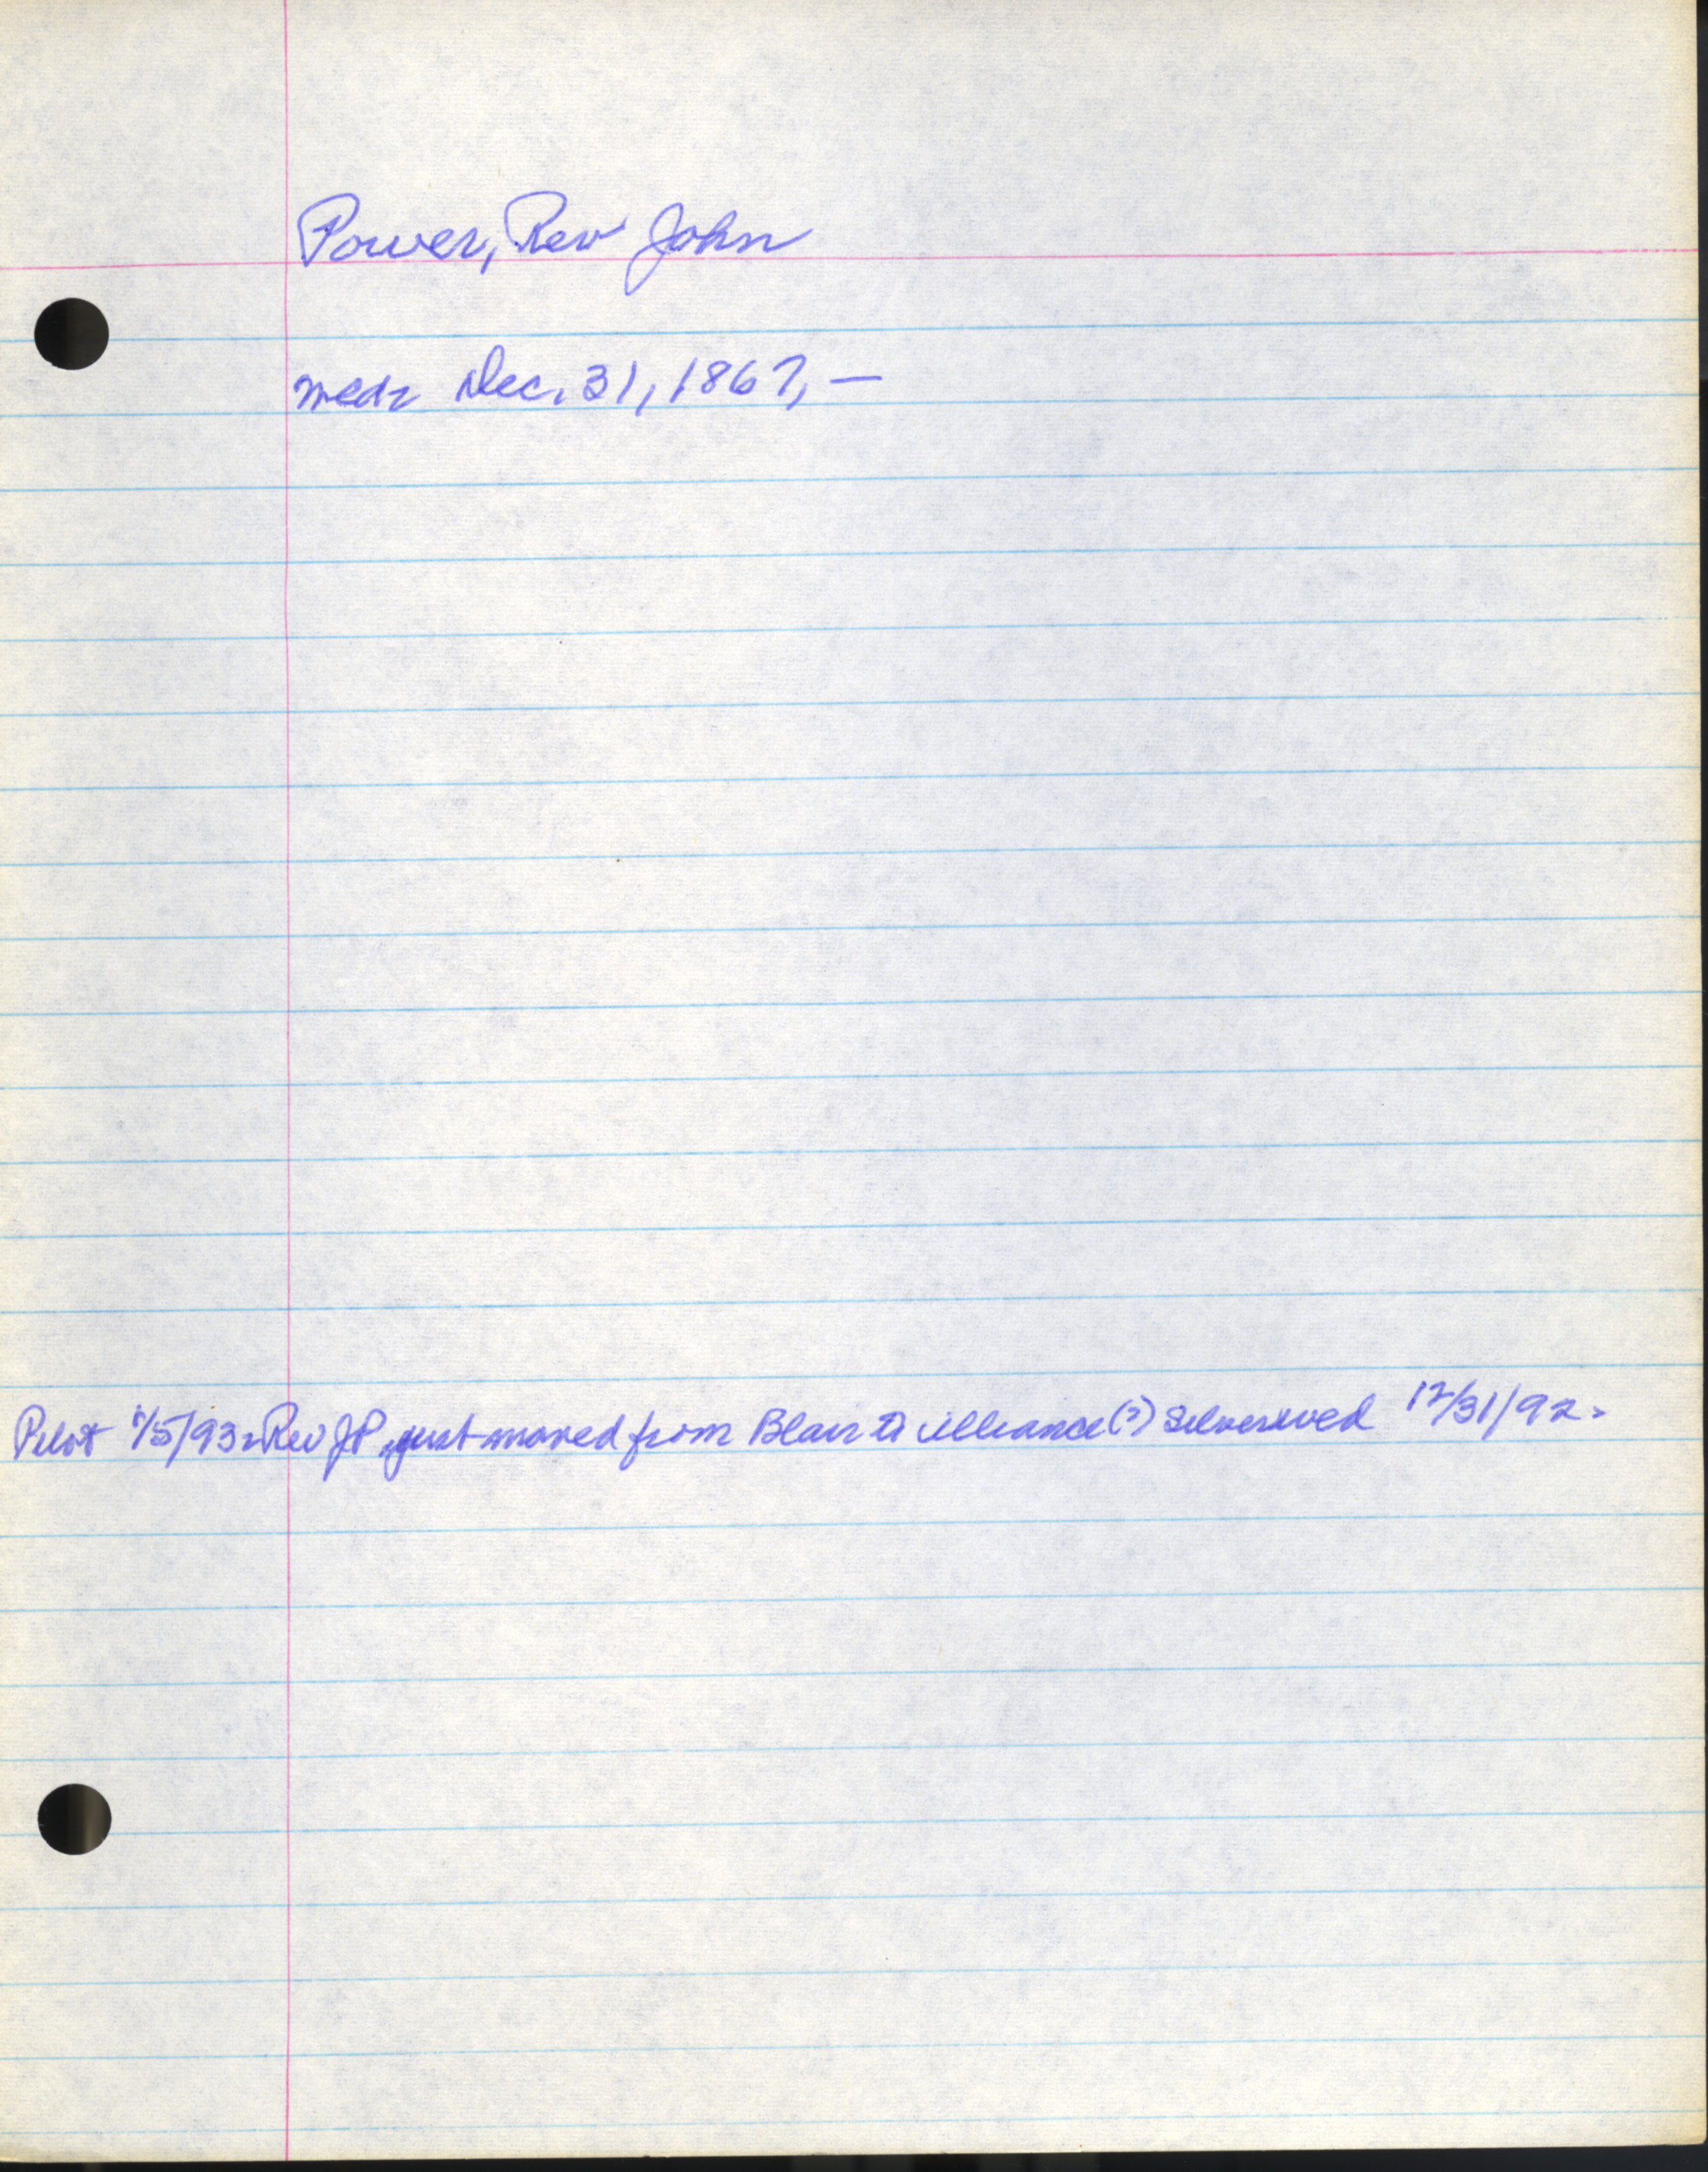 Power, Rev John
med Dec. 31, 1867, —
Pilot 1/5/93. Rev JP, just moved from Blair to Alliance(?) Silver wed 12/31/92.